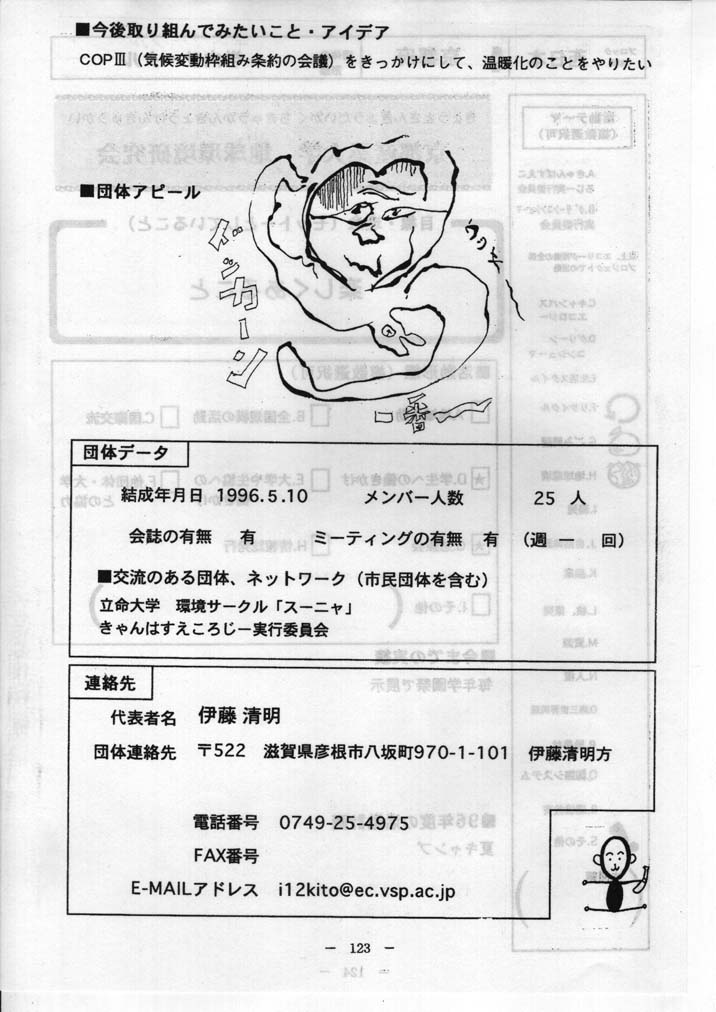 ■今後取り組んでみたいこと・アイデア
COPⅢ（気候変動枠組み条約の会議）をきっかけにして、温暖化のことをやりたい
■団体アピール
ドッカーン
一番
団体データ
結成年月日 1996.5.10 メンバー人数 25 人
会誌の有無 有 ミーティングの有無 有 （週 一 回）
■交流のある団体、ネットワーク（市民団体を含む）
立命大学 環境サークル「スーニャ」
きゃんはすえころじー実行委員会
連絡先
代表者名 伊藤 清明
団体連絡先 〒522 滋賀県彦根市八坂町970-1-101 伊藤清明方
電話番号 0749-25-4975
FAX番号
E-MAILアドレス i12kito@ec.vsp.ac.jp
－ 123 －